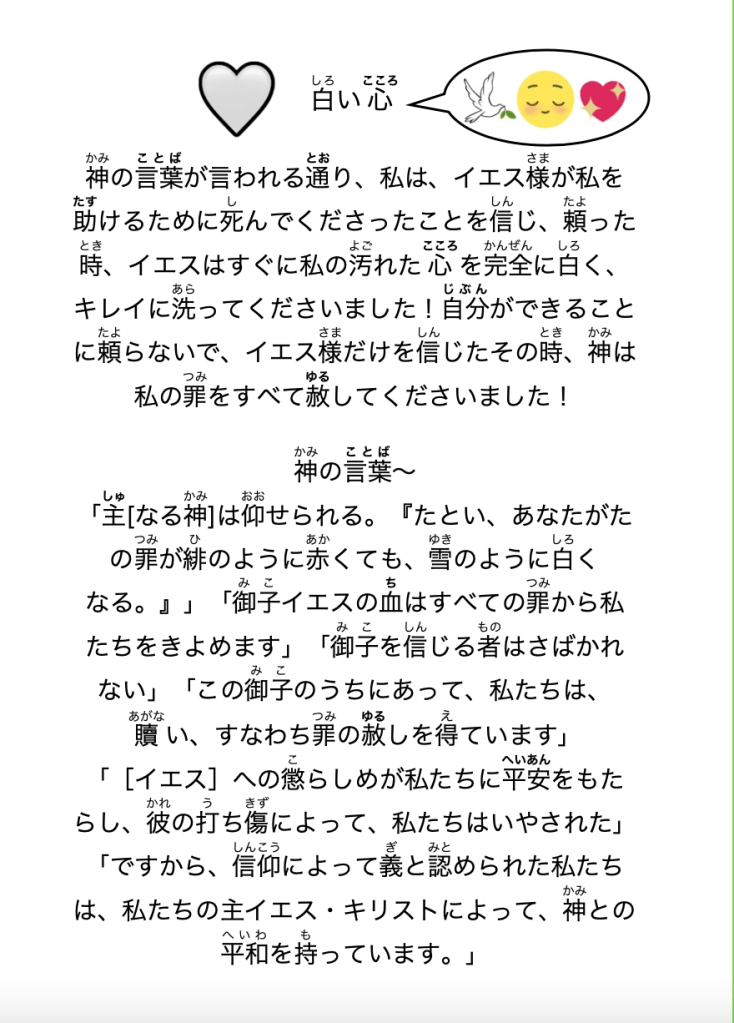 白い心
神の言葉が言われる通り、私は、イエス様が私を
助けるために死んでくださったことを信じ、頼った
時、イエスはすぐに私の汚れた心を完全に白く、
キレイに洗ってくださいました！自分ができること
に頼らないで、イエス様だけを信じたその時、神は
私の罪をすべて赦してくださいました！
神の言葉〜
「主[なる神]は仰せられる。『たとい、あなたがた
の罪が緋のように赤くても、雪のように白く
なる。』」「御子イエスの血はすべての罪から私
たちをきよめます」「御子を信じる者はさばかれ
ない」「この御子のうちにあって、私たちは、
贖い、すなわち罪の赦しを得ています」
「［イエス］への懲らしめが私たちに平安をもた
らし、彼の打ち傷によって、私たちはいやされた」
「ですから、信仰によって義と認められた私たち
は、私たちの主イエス・キリストによって、神との
平和を持っています。」